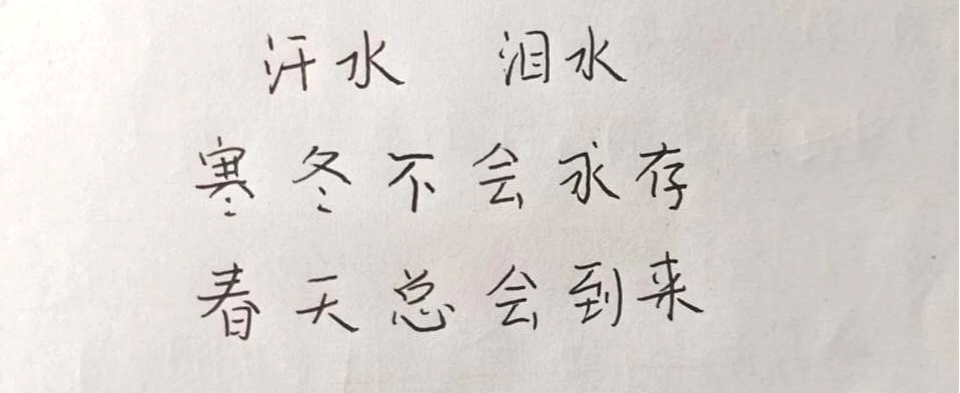 汗水 泪水
寒冬不会永存
春天总会到来